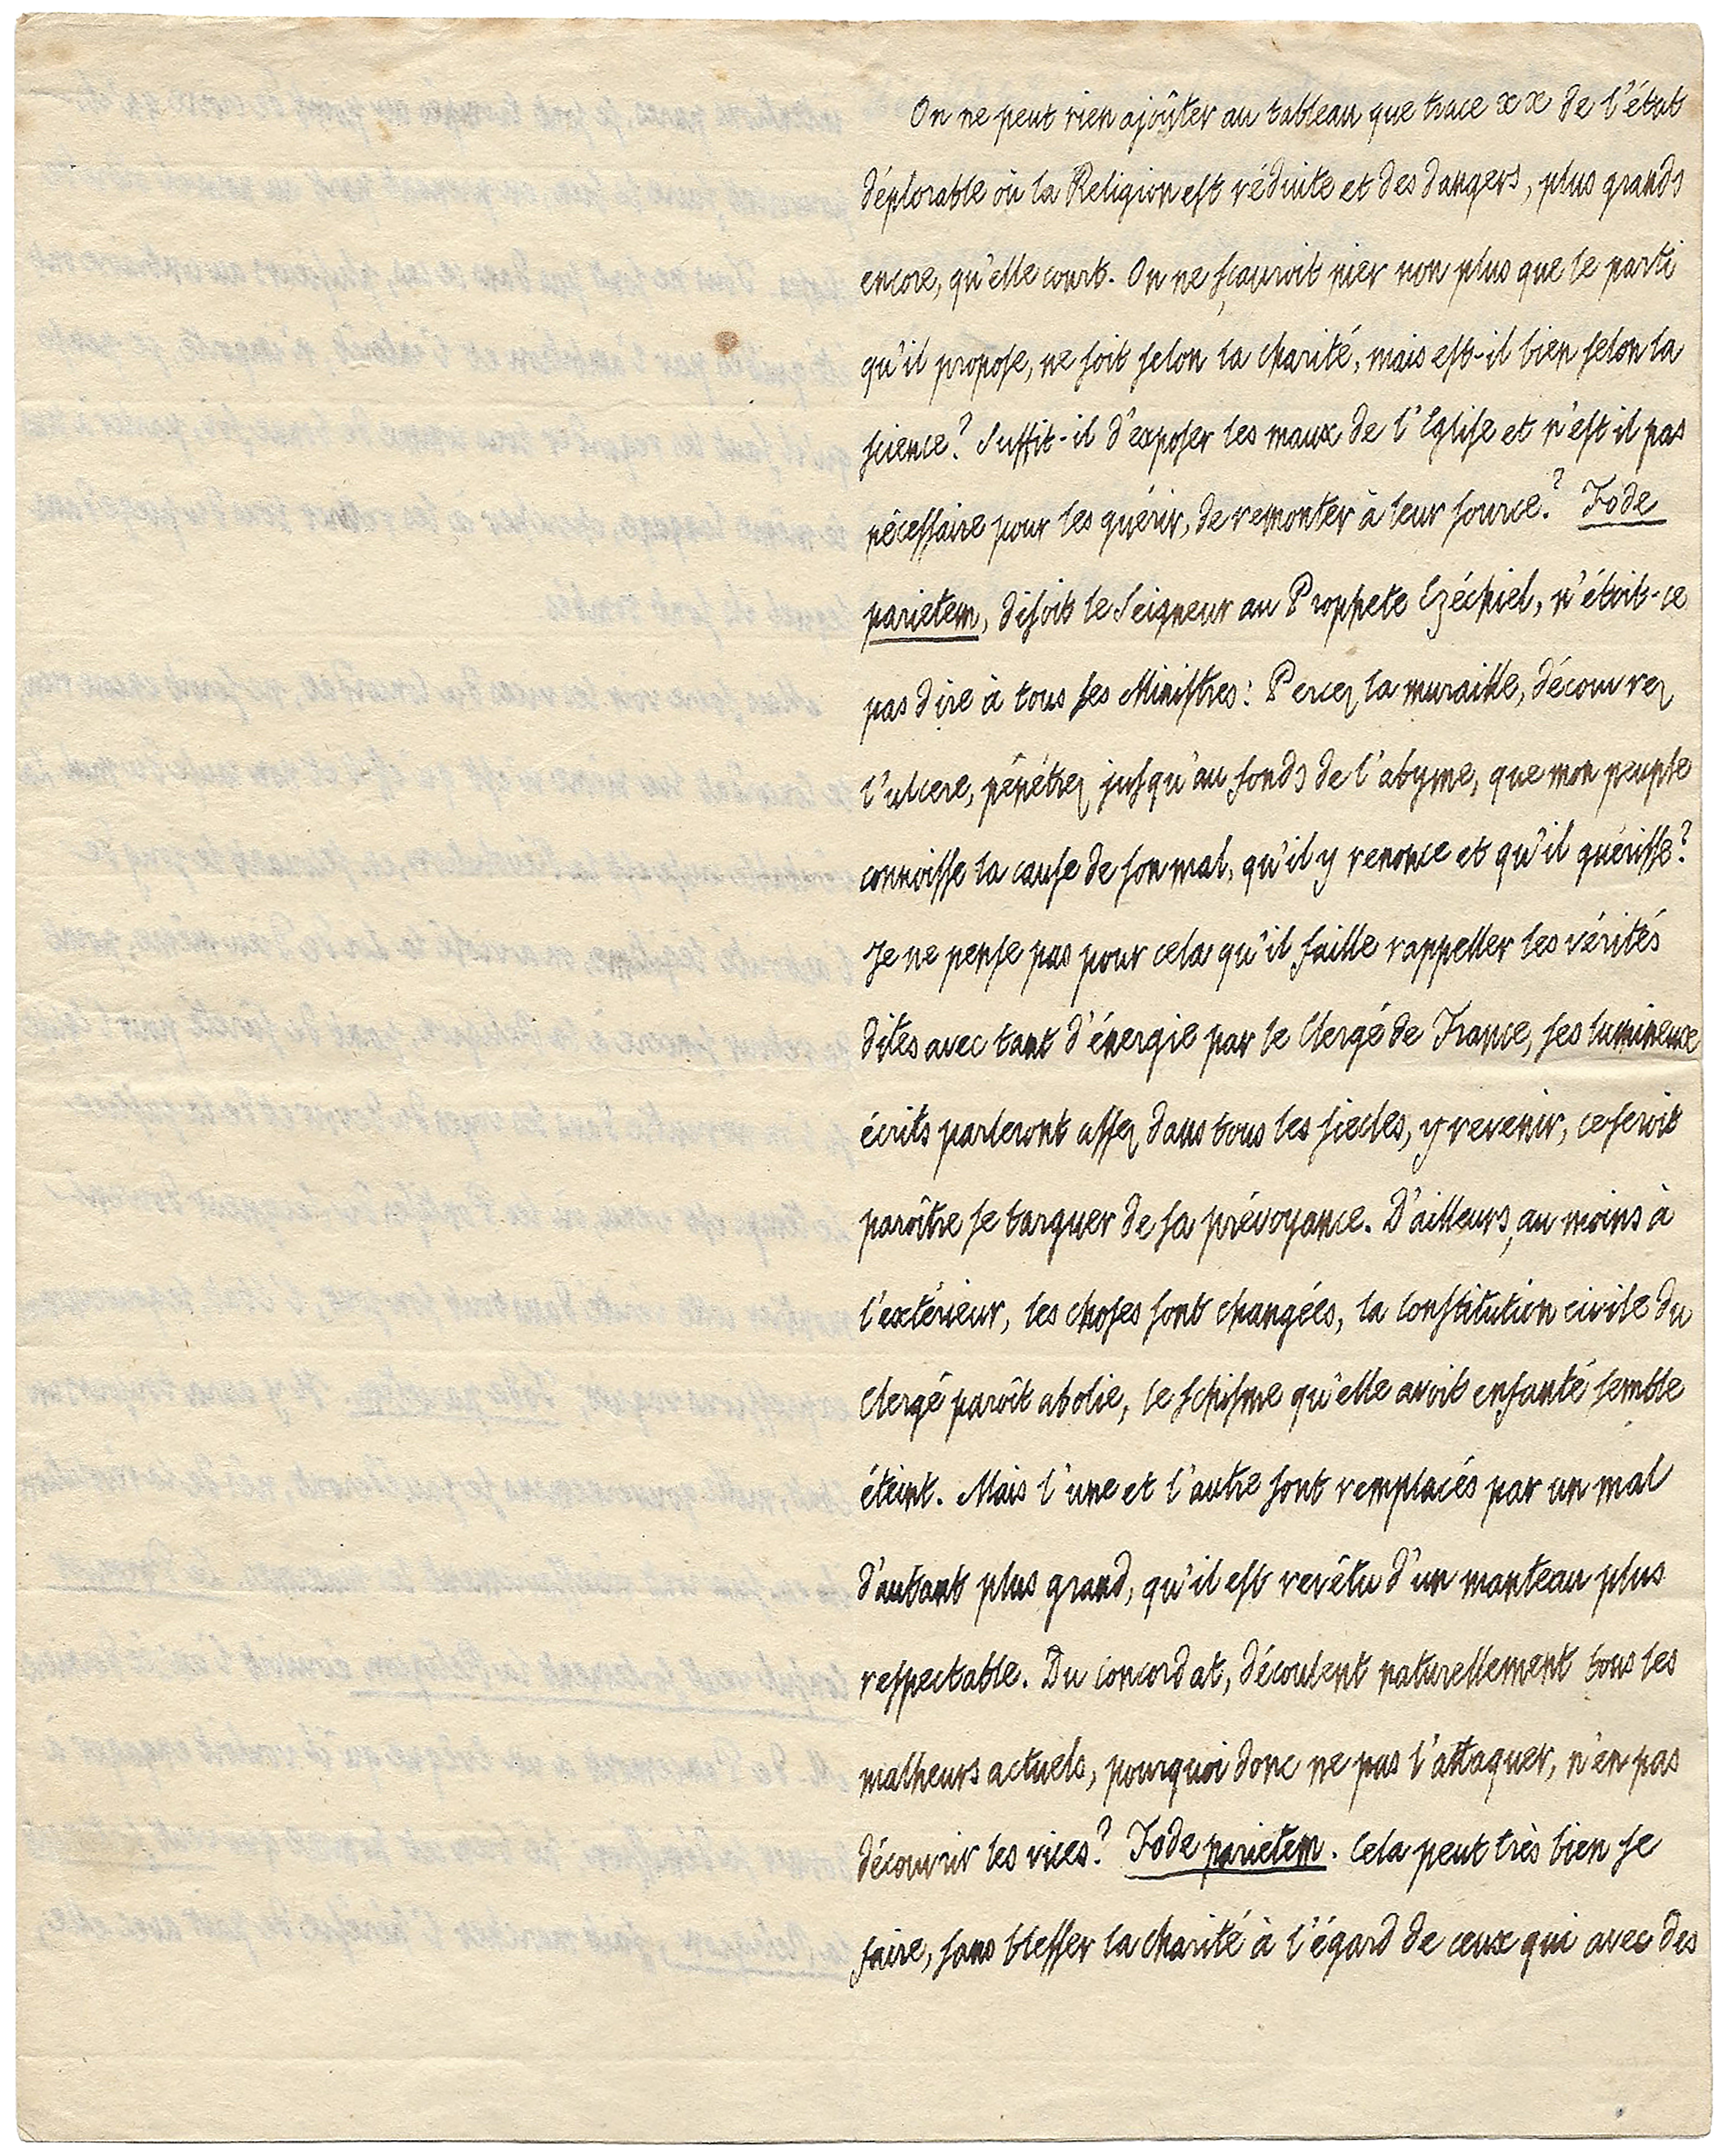 On ne peut rien ajoûter au tableau que trace xx de l'état
déplorable où la Religion est réduite et des dangers, plus grands
encore, qu'elle court. On ne sçauroit nier non plus que le parti
qu'il propose, ne soit selon la charité, mais est-il bien selon la
science? Suffit-il d'exposer les maux de l'Eglise et n'est il pas
nécessaire pour les guérir, de remonter à leur source? Fode
parietem, disoit le Seigneur au Prophete Ezéchiel, n'étoit-ce
pas dire à tous ses Ministres: Percez la muraille, découvrez
l'ulcere, pénétrez jusqu'au fonds de l'abyme, que mon peuple
connoisse la cause de son mal, qu'il y renonce et qu'il guérisse?
Je ne pense pas pour cela qu'il faille rappeller les vérités
dites avec tant d'énergie par le Clergé de France, ses lumineux
écrits parleront assez dans tous les siecles, y revenir, ce seroit
paroître se targuer de sa prévoyance. D'ailleurs, au moins à
l'extérieur, les choses sont changées, la constitution civile du
Clergé paroît abolie, le schisme qu'elle avoit enfanté semble
éteint. Mais l'une et l'autre sont remplacés par un mal
d'autant plus grand, qu'il est revêtu d'un manteau plus
respectable. Du concordat, découlent naturellement tous les
malheurs actuels, pourquoi donc ne pas l'attaquer, n'en pas
découvrir les vices? Fode parietem. Cela peut très bien se
faire, sans blesser la charité à l'égard de ceux qui avec des